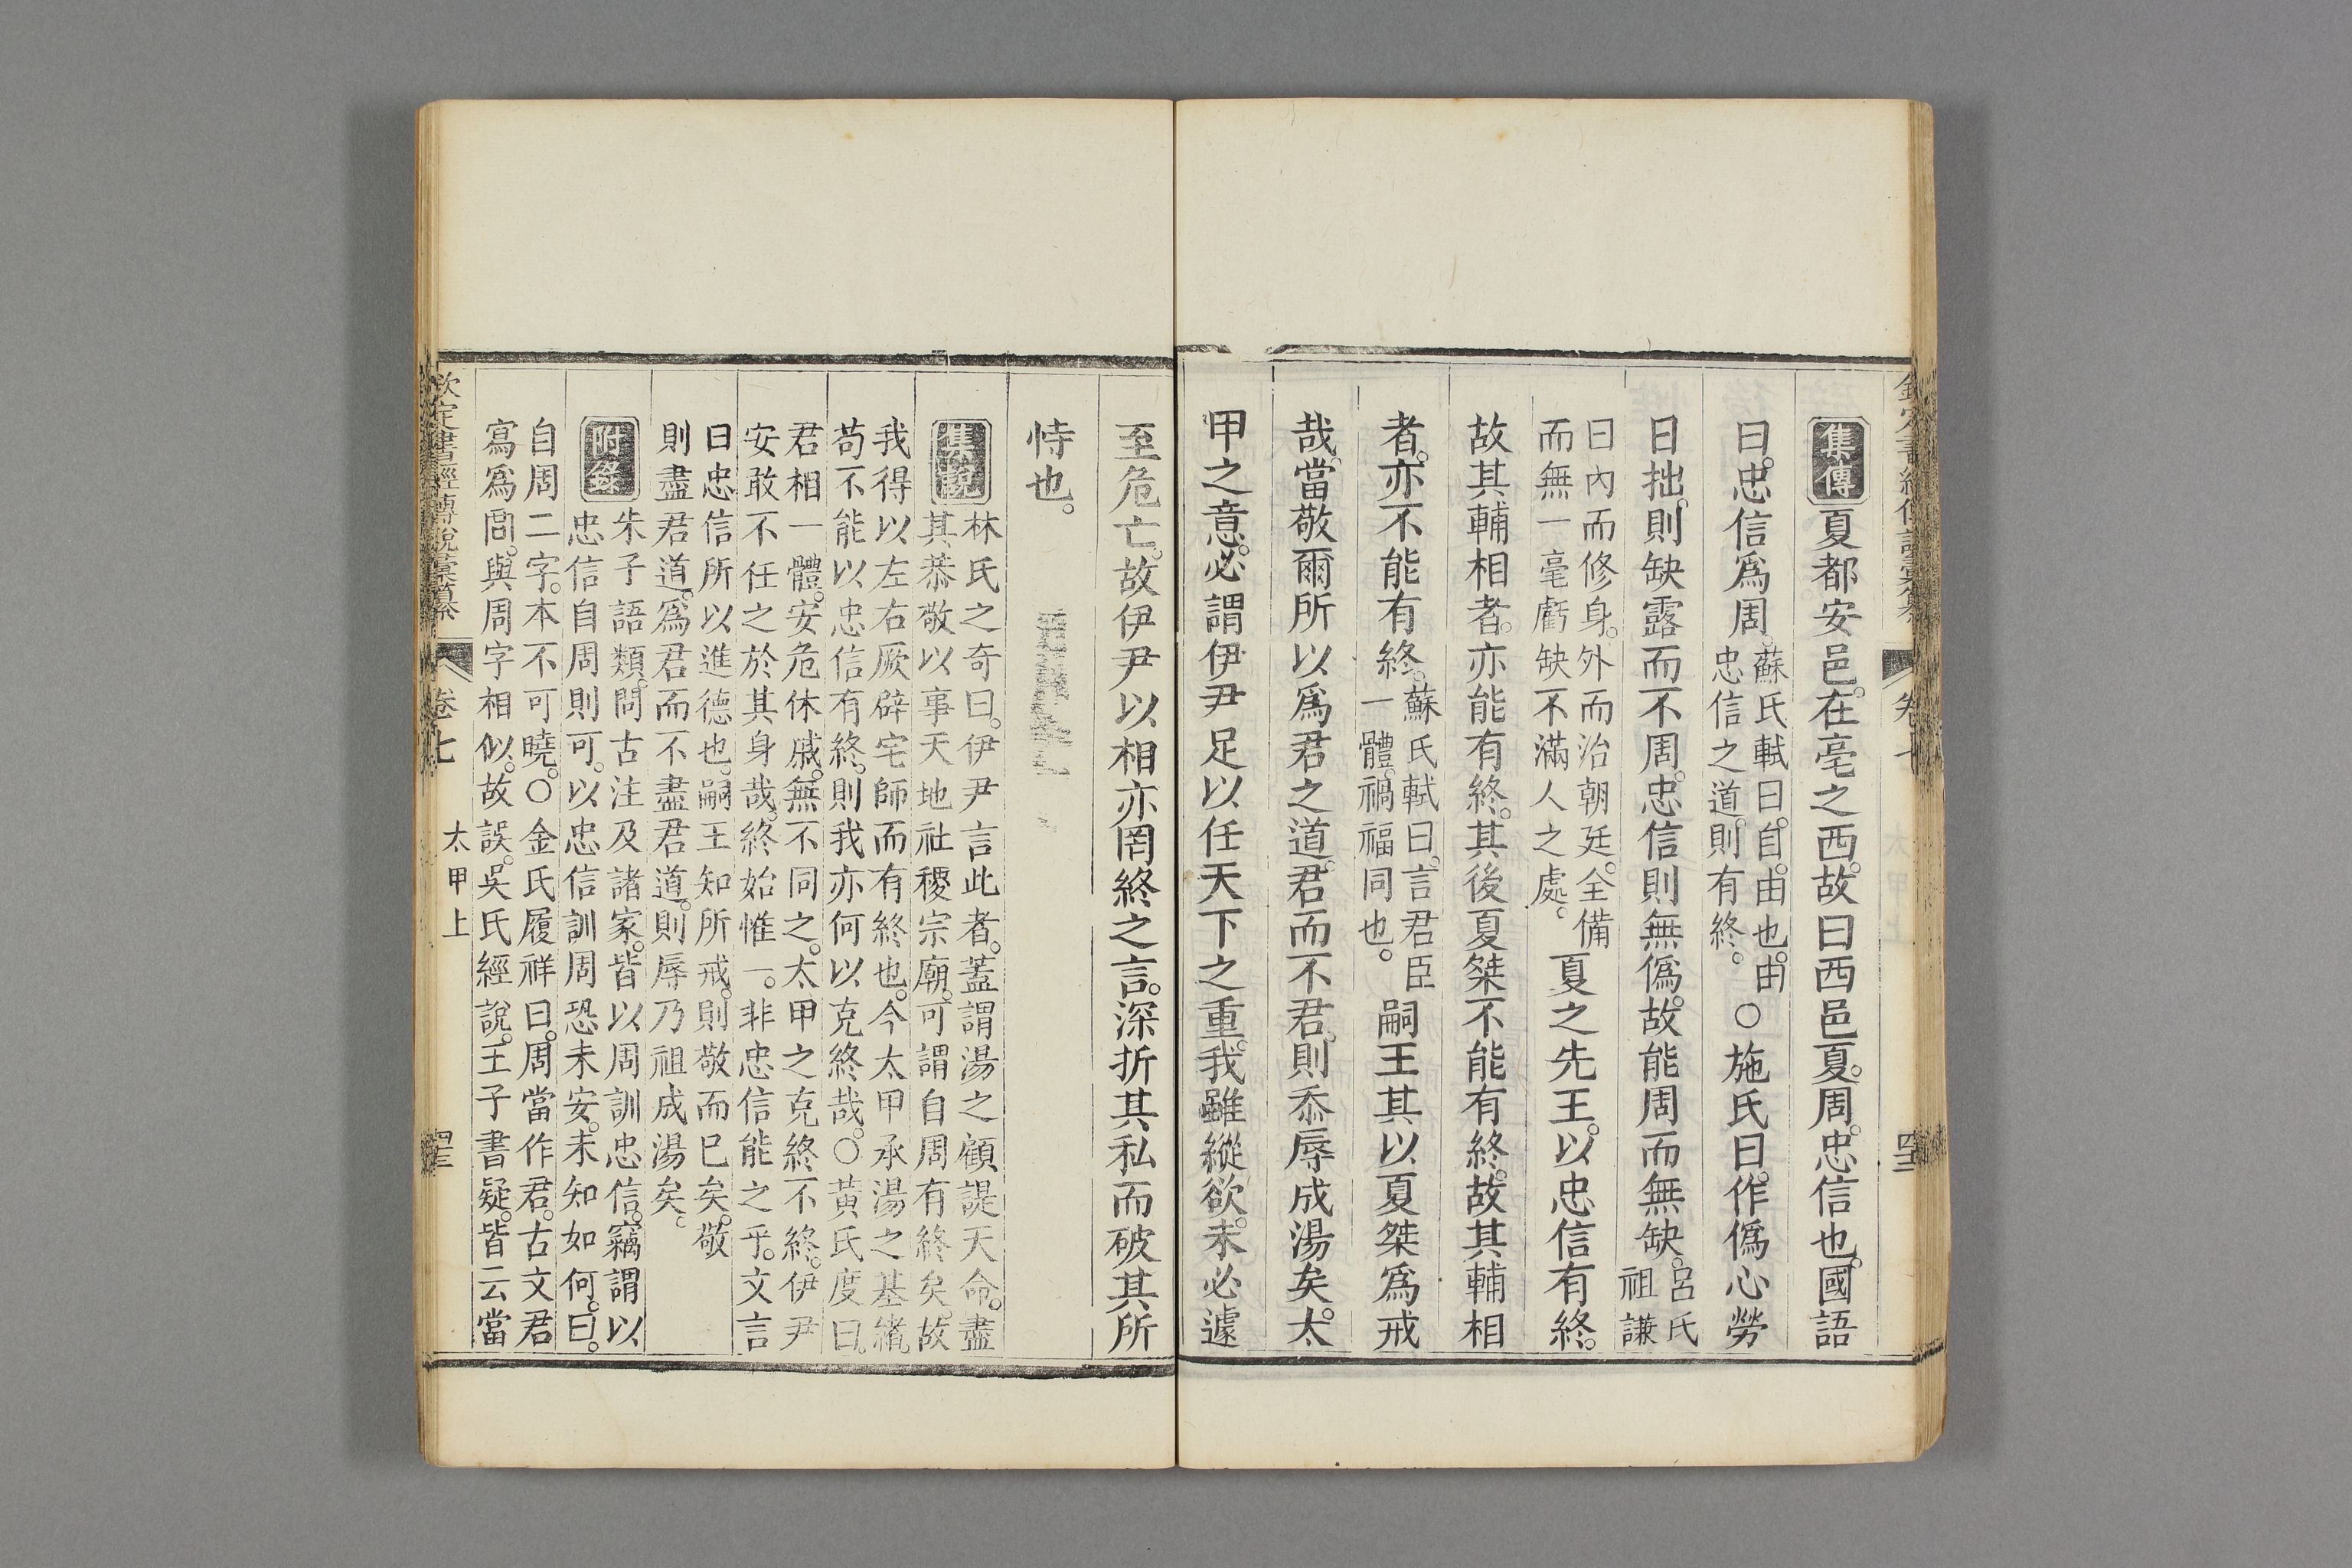 集傳夏都安邑。在亳之西。故曰西邑夏。周。忠信也。國語
曰。忠信爲周。蘇氏軾曰。自。由也。由
忠信之道。則有終。○施氏曰。作僞心勞
日拙。則缺露而不周。忠信則無僞。故能周而無缺。呂氏
祖謙
曰內而修身。外而治朝廷。全備
而無一毫虧缺不滿人之處。夏之先王。以忠信有終。
故其輔相者。亦能有終。其後夏桀不能有終。故其輔相
者。亦不能有終。蘇氏軾曰。言君臣
一體。禍福同也。嗣王其以夏桀爲戒
哉。當敬爾所以爲君之道。君而不君。則忝辱成湯矣。太
甲之意。必謂伊尹足以任天下之重。我雖縱欲。未必遽
至危亡。故伊尹以相亦罔終之言。深折其私而破其所
恃也。
集說林氏之奇曰。伊尹言此者。蓋謂湯之顧諟天命。盡
其恭敬以事天地社稷宗廟。可謂自周有終矣。故
我得以左右厥辟宅師而有終也。今太甲承湯之基緒。
苟不能以忠信有終。則我亦何以克終哉。○黃氏度曰。
君相一體。安危休戚。無不同之。太甲之克終不終。伊尹
安敢不任之於其身哉。終始惟一。非忠信能之乎。文言
曰忠信所以進德也。嗣王知所戒。則敬而已矣。敬
則盡君道。爲君而不盡君道。則辱乃祖成湯矣。
附錄朱子語類。問古注及諸家。皆以周訓忠信。竊謂以
忠信自周則可。以忠信訓周恐未安。未知如何。曰。
自周二字。本不可曉。○金氏履祥曰。周當作君。古文君
寫爲𠱩。與周字相似。故誤。吳氏經說。王子書疑。皆云當
欽定書經傳說彙纂
卷七
太甲上